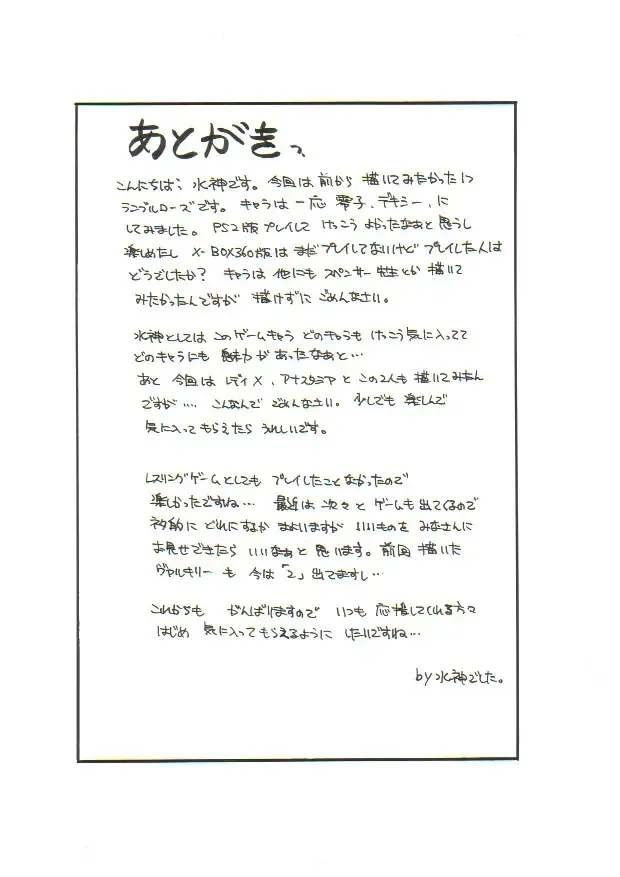 あとがきっ
こんにちは、水神です。今回は前から描いてみたかった
ランブルローズです。キャラは一応零子、デキシー、に
してみました。PS2版プレイして けっこうよかったなぁと思うし
楽しめたし X-BOX360版はまだプレイしてないけどプレイした人は
どうでしたか? キャラは他にもスペンサー先生とか描いて
みたかったんですが 描けずにごめんなさい。
水神としてはこのゲームキャラ どのキャラも けっこう気に入ってて
どのキャラにも魅力があったなぁと…
あと 今回は レディX、アナスタシアと この2人も描いてみたん
ですが… こんなんで ごめんなさい。少しでも楽しんで
気に入ってもらえたら うれしいです。
レスリングゲームとしても プレイしたことなかったので
楽しかったですね… 最近は次々と ゲームも出てくるので
ネタ的に どれにするか まよいますが いいものを みなさんに
お見せできたら いいなぁと思います。前回 描いた
ヴァルキリーも 今は「2」出てますし…
これからも がんばりますので いつも応援してくれる方々
はじめ 気に入ってもらえるように したいですね…
by水神でした。